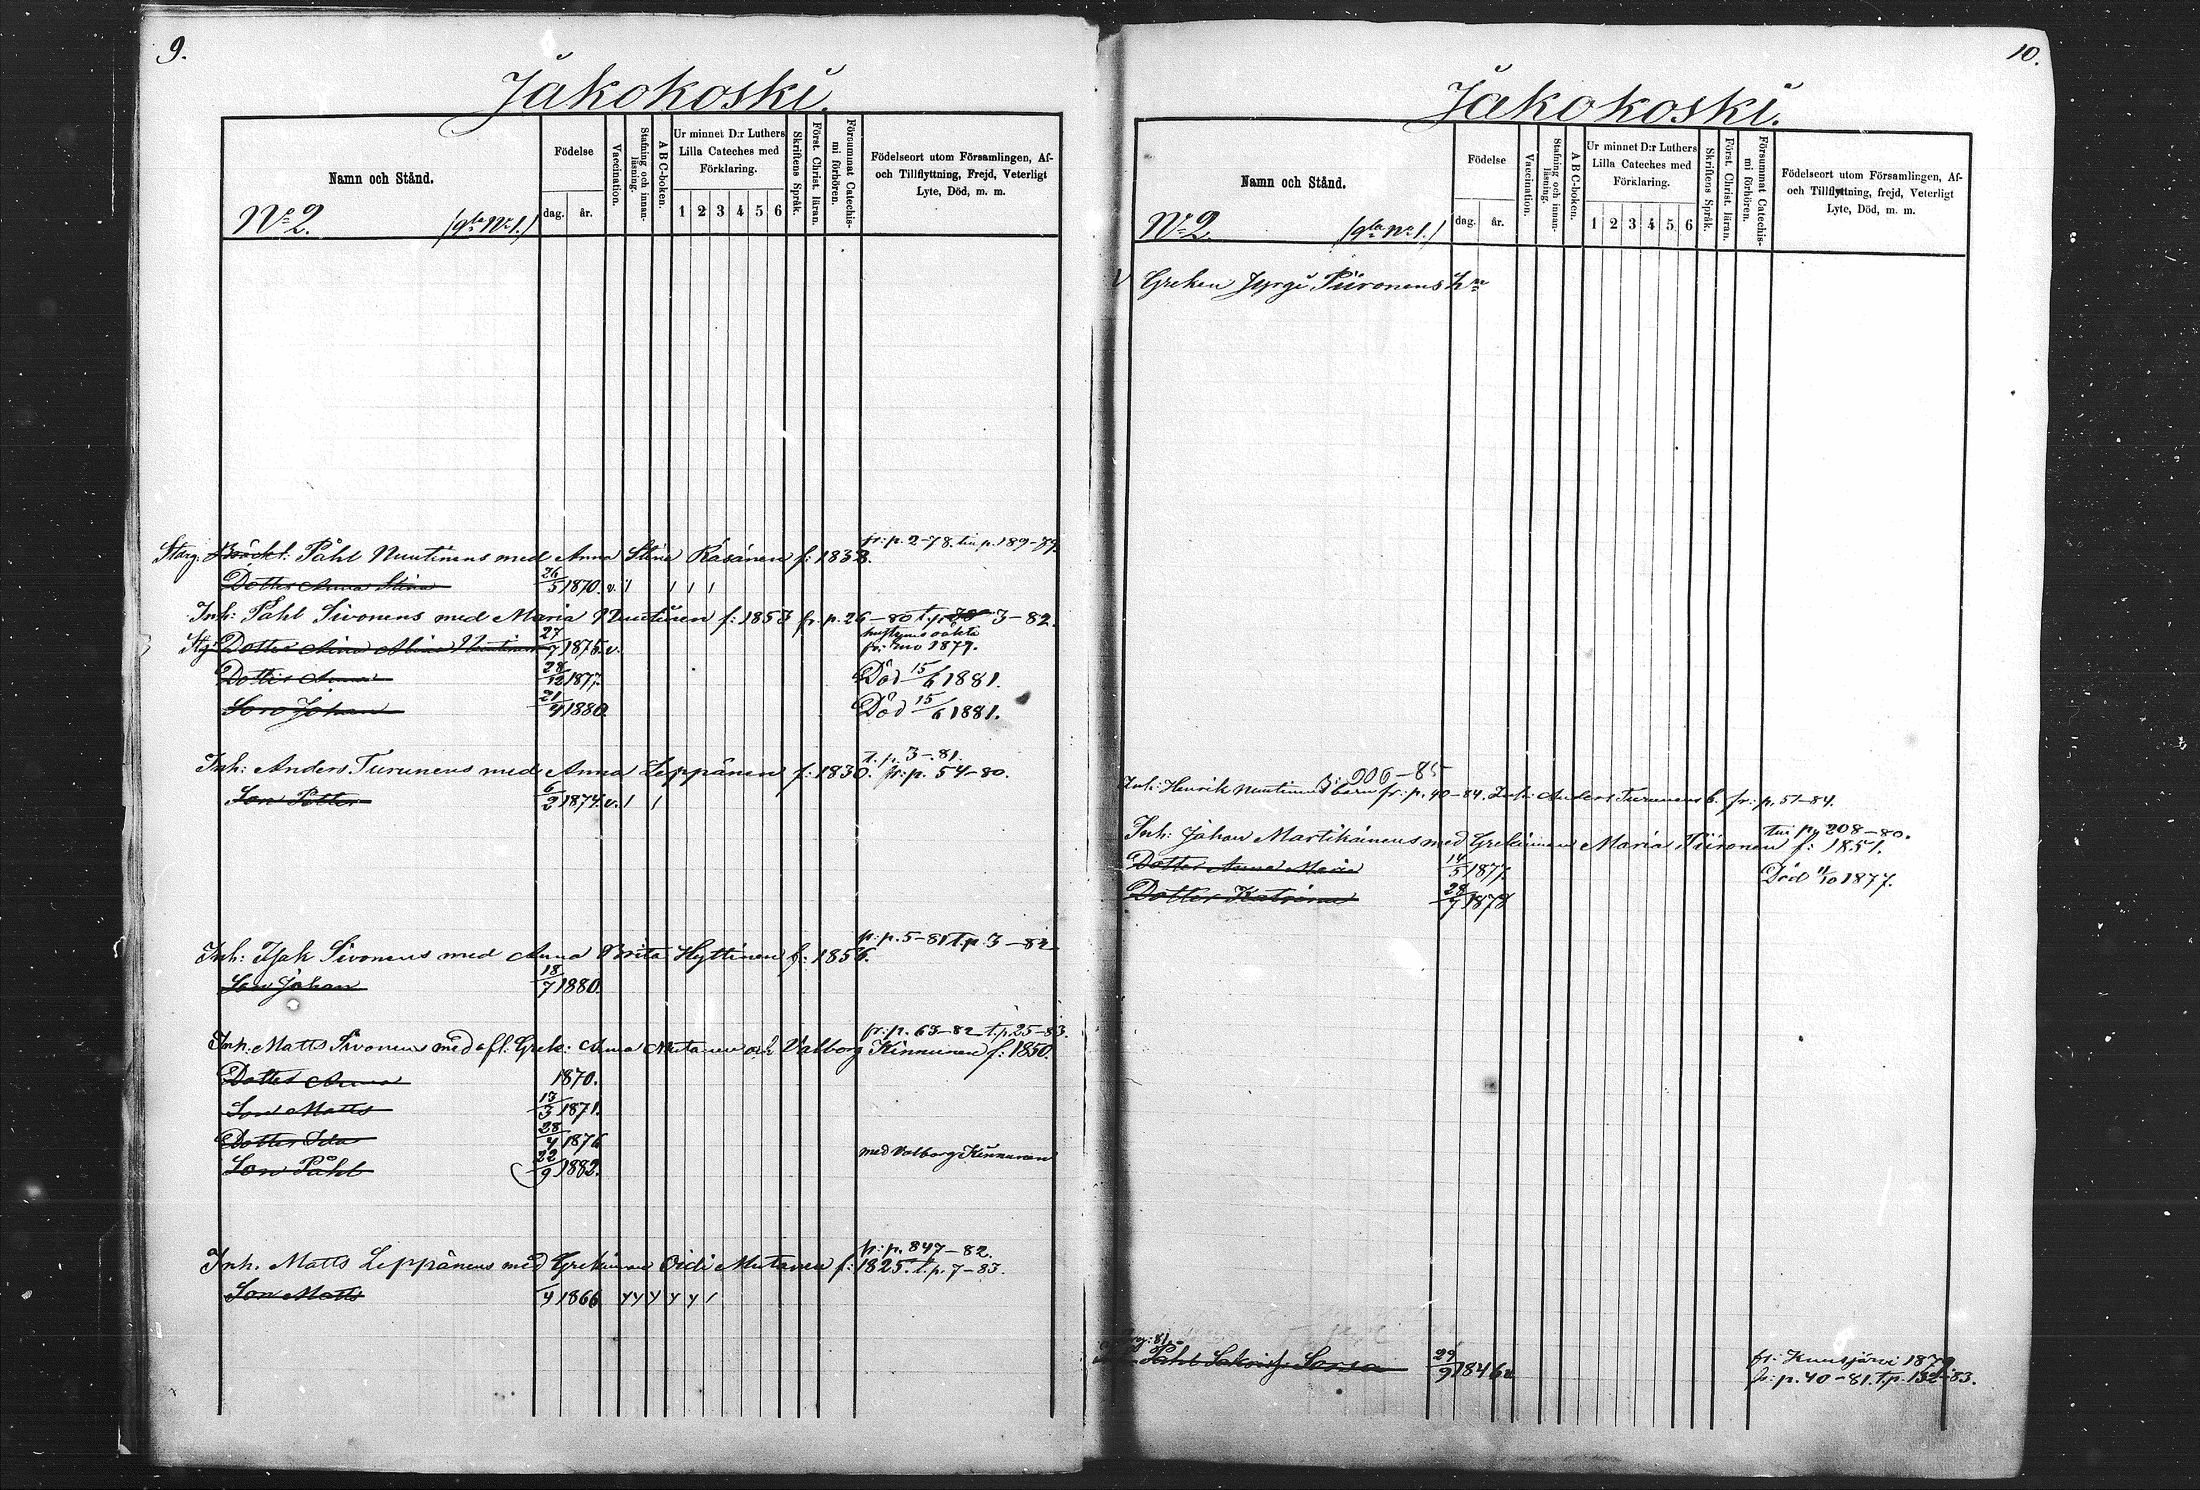 9.
Jakokoski.
Namn och Stånd.
Födelse
dag. år.
Vaccination.
Stafning och innanläsning.
ABC-boken.
Ur minnet D:r Luthers Lilla Cateches med Förklaring.
1 2 3 4 5 6
Skriftens Språk.
Först. Christ. läran.
Försummat Catechismi förhören.
Födelseort utom Församlingen, Af- och Tillflyttning, Frejd, Veterligt Lyte, Död, m. m.
No 2. (gla No 1.)
fr: p. 2-78. till p. 189-79.
Påhl Nuutinens med Anna Stina Kasanen f: 1838.
Dotter Anna Stina 26/5 1870. v. / / / /
Inh: Påhl Sivonens med Maria Nuutinen f: 1853 fr. p. 26-80 t. p. 3-82.
Dotter Alina Nuutinen 27/7 1875. v. fr: 1879.
Dotter Anna 28/12 1877. Död 15/6 1881.
Son Johan 21/4 1880. Död 15/6 1881.
t. p. 3-81.
Inh: Anders Turunens med Anna Leppänen f: 1830. fr: p. 54-80.
Son Petter 6/2 1874. v. / /
fr: p. 5-81 t. p. 3-82
Inh: Isak Sivonens med Anna Brita Hyttinen f: 1856.
Son Johan 18/7 1880.
fr: p. 63-82 t. p. 25-83.
Inh: Matts Sivonens med afl. Grek: Anna Mutanen och Valborg Kinnunen f: 1850.
Dotter Anna 1870.
Son Matts 13/3 1871.
Dotter Ida 28/4 1876
Son Påhl 22/9 1882. med Valborg Kinnunen
fr: p. 847-82.
Inh. Matts Leppänens med Grekinnan Oidi Mutanen f: 1825. t. p. 7-83.
Son Matts /4 1866
10.
Jakokoski.
Namn och Stånd.
Födelse
dag. år.
Vaccination.
Stafning och innanläsning.
ABC-boken.
Ur minnet D:r Luthers Lilla Cateches med Förklaring.
1 2 3 4 5 6
Skriftens Språk.
Först. Christ. läran.
Försummat Catechismi förhören.
Födelseort utom Församlingen, Af- och Tillflyttning, frejd, Veterligt Lyte, Död, m. m.
No 2. (gla No 1.)
Greken Jyrgi Piironens
906-85
Inh: Henrik Nuutinens barn fr: p. 40-84. Inh: Anders Turunens b. fr: p. 51-84.
till p. 208-80.
Inh: Johan Martikainens med Grekinnan Maria Piironen f: 1851.
Dotter Anna Maria 14/5 1877. Död 11/10 1877.
Dotter Katrina 28/7 1878
Påhl 29/9 1846 v. fr: Kuusjärvi 1879
fr: p. 40-81. t. p. 132-83.